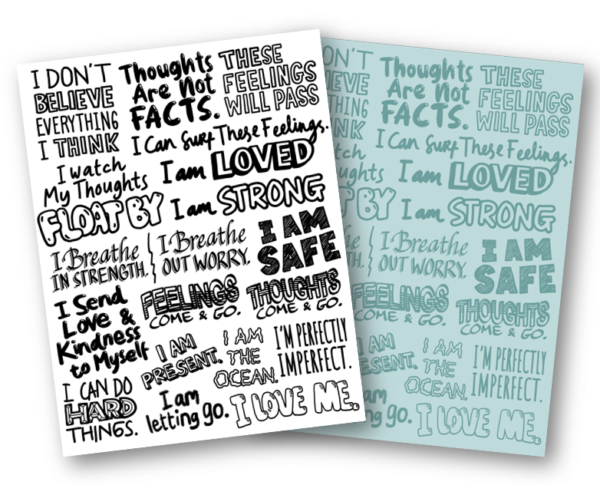 I DON'T
BELIEVE
EVERYTHING
I THINK
Thoughts
Are Not
FACTS.
THESE
FEELINGS
WILL PASS
I Can Surf These Feelings.
I watch
My Thoughts
FLOAT BY
I am LOVED
I am STRONG
I Breathe
IN STRENGTH.
I Breathe
OUT WORRY.
I AM
SAFE
I Send
Love &
Kindness
to Myself
FEELINGS
COME & GO.
THOUGHTS
COME & GO.
I AM
PRESENT.
I AM
THE
OCEAN.
I'M PERFECTLY
IMPERFECT.
I CAN DO
HARD
THINGS.
I am
letting go.
I LOVE ME.
ON'T
IEVE
THING
INK
Thoughts
Are Not
FACTS.
THESE
FEELINGS
WILL PASS
I Can Surf These Feelings.
ch
ghts
BY
I am LOVED
I am STRONG
the
GTH.
I Breathe
OUT WORRY.
I AM
SAFE
FEELINGS
COME & GO.
THOUGHTS
COME & GO.
AM
ESENT.
I AM
THE
OCEAN.
I'M PERFECTLY
IMPERFECT.
am
ing go.
I LOVE ME.